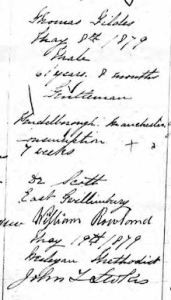 Thomas Gildes
May 8th 1879
Male
61 years. 8 months
Gentleman
Manchester
consumption + 2
7 weeks
Dr Scott
East Gwillimbury
William Rowland
May 19th 1879
Wesleyan Methodist
John T